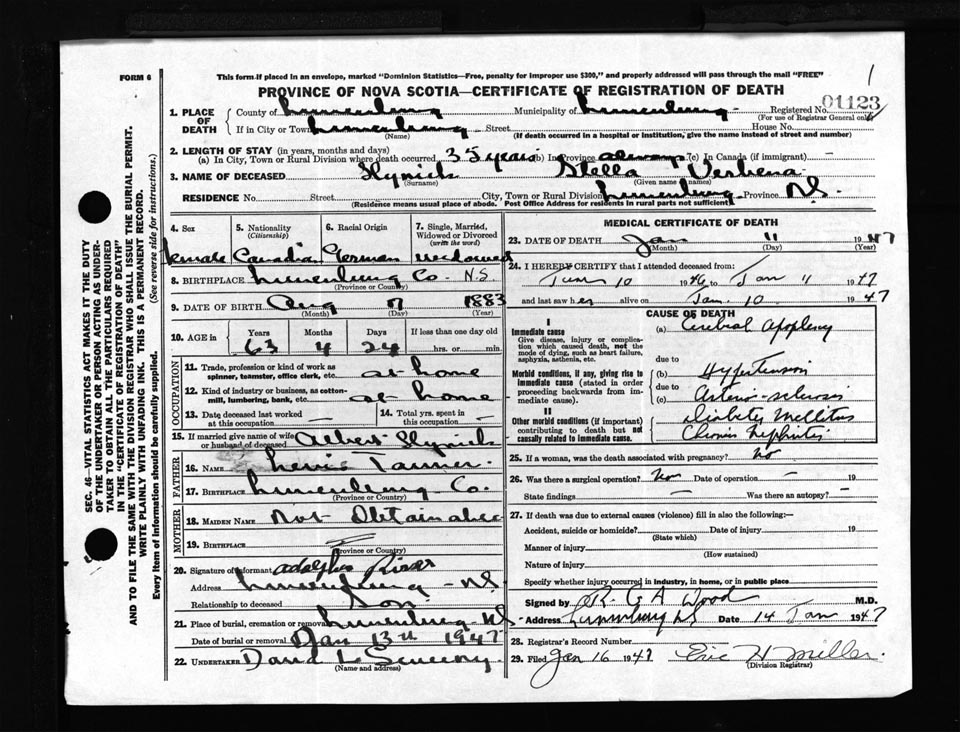 FORM 6
This form if placed in an envelope, marked "Dominion Statistics—Free, penalty for improper use $300," and properly addressed will pass through the mail "FREE"
1
PROVINCE OF NOVA SCOTIA—CERTIFICATE OF REGISTRATION OF DEATH
1. PLACE OF DEATH
County of Lunenburg Municipality of Lunenburg Registered No. 01123
(For use of Registrar General only)
If in City or Town Lunenburg Street House No.
(Name) (If death occurred in a hospital or institution, give the name instead of street and number)
2. LENGTH OF STAY (in years, months and days)
(a) In City, Town or Rural Division where death occurred 35 years (b) In Province always (c) In Canada (if immigrant) —
3. NAME OF DECEASED Stella Verbena
(Surname) (Given name or names)
RESIDENCE No. Street. City, Town or Rural Division Lunenburg Province N.S.
(Residence means usual place of abode. Post Office Address for residents in rural parts not sufficient)
SEC. 46—VITAL STATISTICS ACT MAKES IT THE DUTY
OF THE UNDERTAKER OR PERSON ACTING AS UNDER-
TAKER TO OBTAIN ALL THE PARTICULARS REQUIRED
IN THE "CERTIFICATE OF REGISTRATION OF DEATH"
AND TO FILE THE SAME WITH THE DIVISION REGISTRAR WHO SHALL ISSUE THE BURIAL PERMIT.
WRITE PLAINLY WITH UNFADING INK. THIS IS A PERMANENT RECORD.
Every item of Information should be carefully supplied. (See reverse side for instructions.)
4. Sex
5. Nationality
(Citizenship)
6. Racial Origin
7. Single, Married, Widowed or Divorced
(write the word)
female Canadian German widowed
8. BIRTHPLACE Lunenburg Co. N.S
(Province or Country)
9. DATE OF BIRTH Aug 7 1883
(Month) (Day) (Year)
10. AGE in
Years Months Days If less than one day old
63 4 24 hrs. or min.
OCCUPATION
11. Trade, profession or kind of work as
spinner, teamster, office clerk, etc. at home
12. Kind of industry or business, as cotton-
mill, lumbering, bank, etc. at home
13. Date deceased last worked
at this occupation —
14. Total yrs. spent in
this occupation —
15. If married give name of wife
or husband of deceased Albert
FATHER
16. NAME Lewis Tanner
17. BIRTHPLACE Lunenburg Co.
(Province or Country)
MOTHER
18. MAIDEN NAME Not Obtainable
19. BIRTHPLACE
(Province or Country)
20. Signature of informant Adolphus
Address Lunenburg - NS
Relationship to deceased Son
21. Place of burial, cremation or removal Lunenburg NS
Date of burial or removal Jan 13th 1947
22. UNDERTAKER David L Sweeny
(Name and address)
MEDICAL CERTIFICATE OF DEATH
23. DATE OF DEATH Jan 11 1947
(Month) (Day)
24. I HEREBY CERTIFY that I attended deceased from
10 1946 to Jan 11 1947
and last saw her alive on Jan. 10 1947
CAUSE OF DEATH
I
Immediate cause
Give disease, injury or complica-
tion which caused death, not the
mode of dying, such as heart failure,
asphyxia, asthenia, etc.
(a) Cerebral Apoplexy
due to
Morbid conditions, if any, giving rise to
immediate cause (stated in order
proceeding backwards from im-
mediate cause).
(b) Hypertension
due to
(c) Arterio-sclerosis
II
Other morbid conditions (if important)
contributing to death but not
causally related to immediate cause.
Diabetes Mellitus
Chronic Nephritis
25. If a woman, was the death associated with pregnancy? No
26. Was there a surgical operation? No Date of operation — 19
State findings — Was there an autopsy? —
27. If death was due to external causes (violence) fill in also the following:—
Accident, suicide or homicide? Date of injury 19
(State which)
Manner of injury
(How sustained)
Nature of injury
Specify whether injury occurred in industry, in home, or in public place
Signed by R. G A Wood M.D.
Address Lunenburg NS Date 14 Jan 1947
28. Registrar's Record Number
29. Filed Jan 16 1947 Eric H Miller.
(Division Registrar)